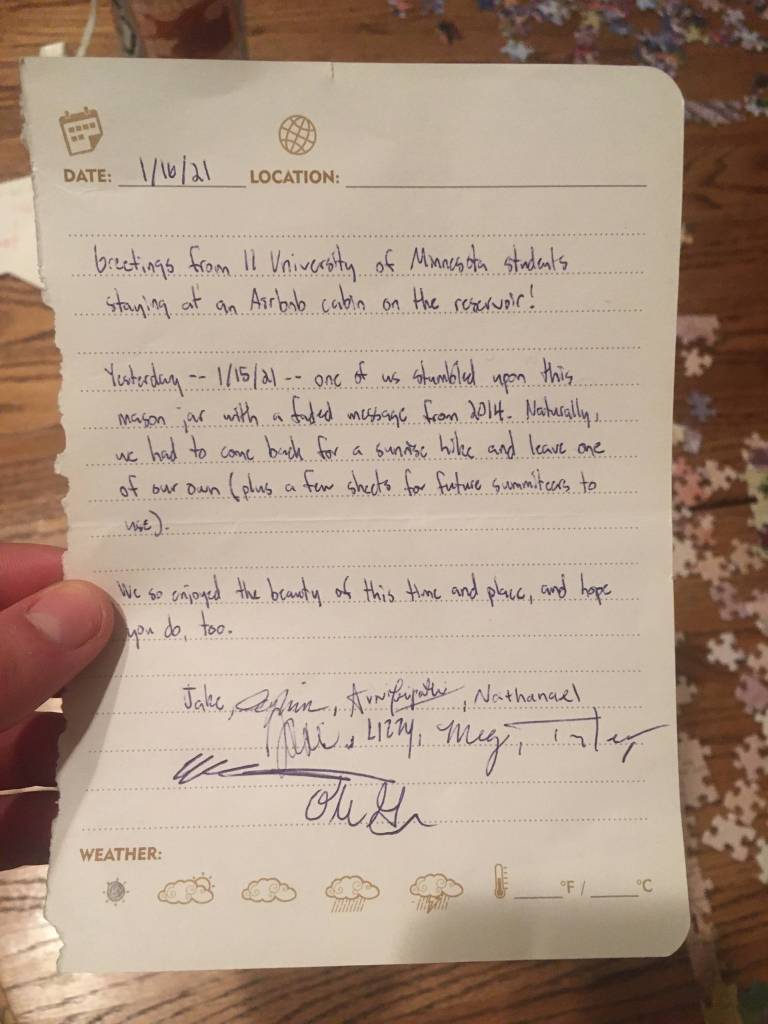 DATE: 1/16/21 LOCATION:
Greetings from 11 University of Minnesota students
staying at an Airbnb cabin on the reservoir!
Yesterday -- 1/15/21 -- one of us stumbled upon this
mason jar with a faded message from 2014. Naturally,
we had to come back for a sunrise hike and leave one
of our own (plus a few sheets for future summiteers to
use).
We so enjoyed the beauty of this time and place, and hope
you do, too.
Jake, Nathanael
Lizzy, Meg,
WEATHER:
°F / °C